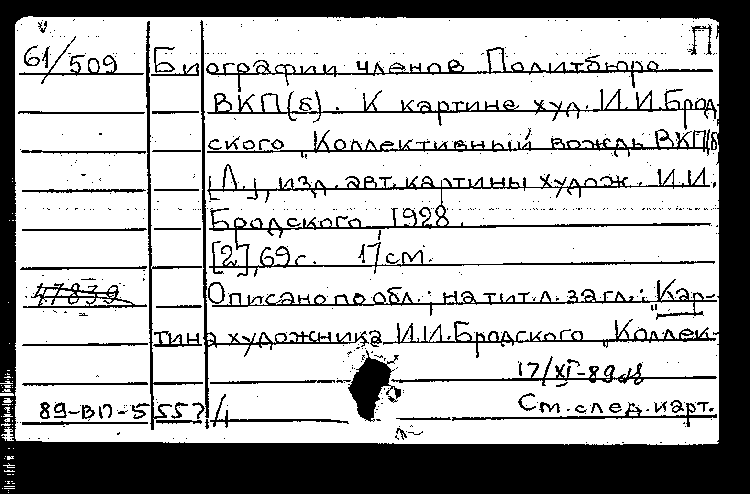 П
61/509 Биографии членов Политбюро
ВКП(б). К картине худ. И.И.Брод-
ского "Коллективный вождь ВКП(б)
[Л.], изд. авт. картины худож. И.И.
Бродского 1928.
[2], 69 с. 17 см.
47839 Описано по обл.; на тит.л. загл.: "Кар-
тина художника И.И.Бродского "Коллек-
17/XI-89
89-ВП-5557/1 См. след. карт.